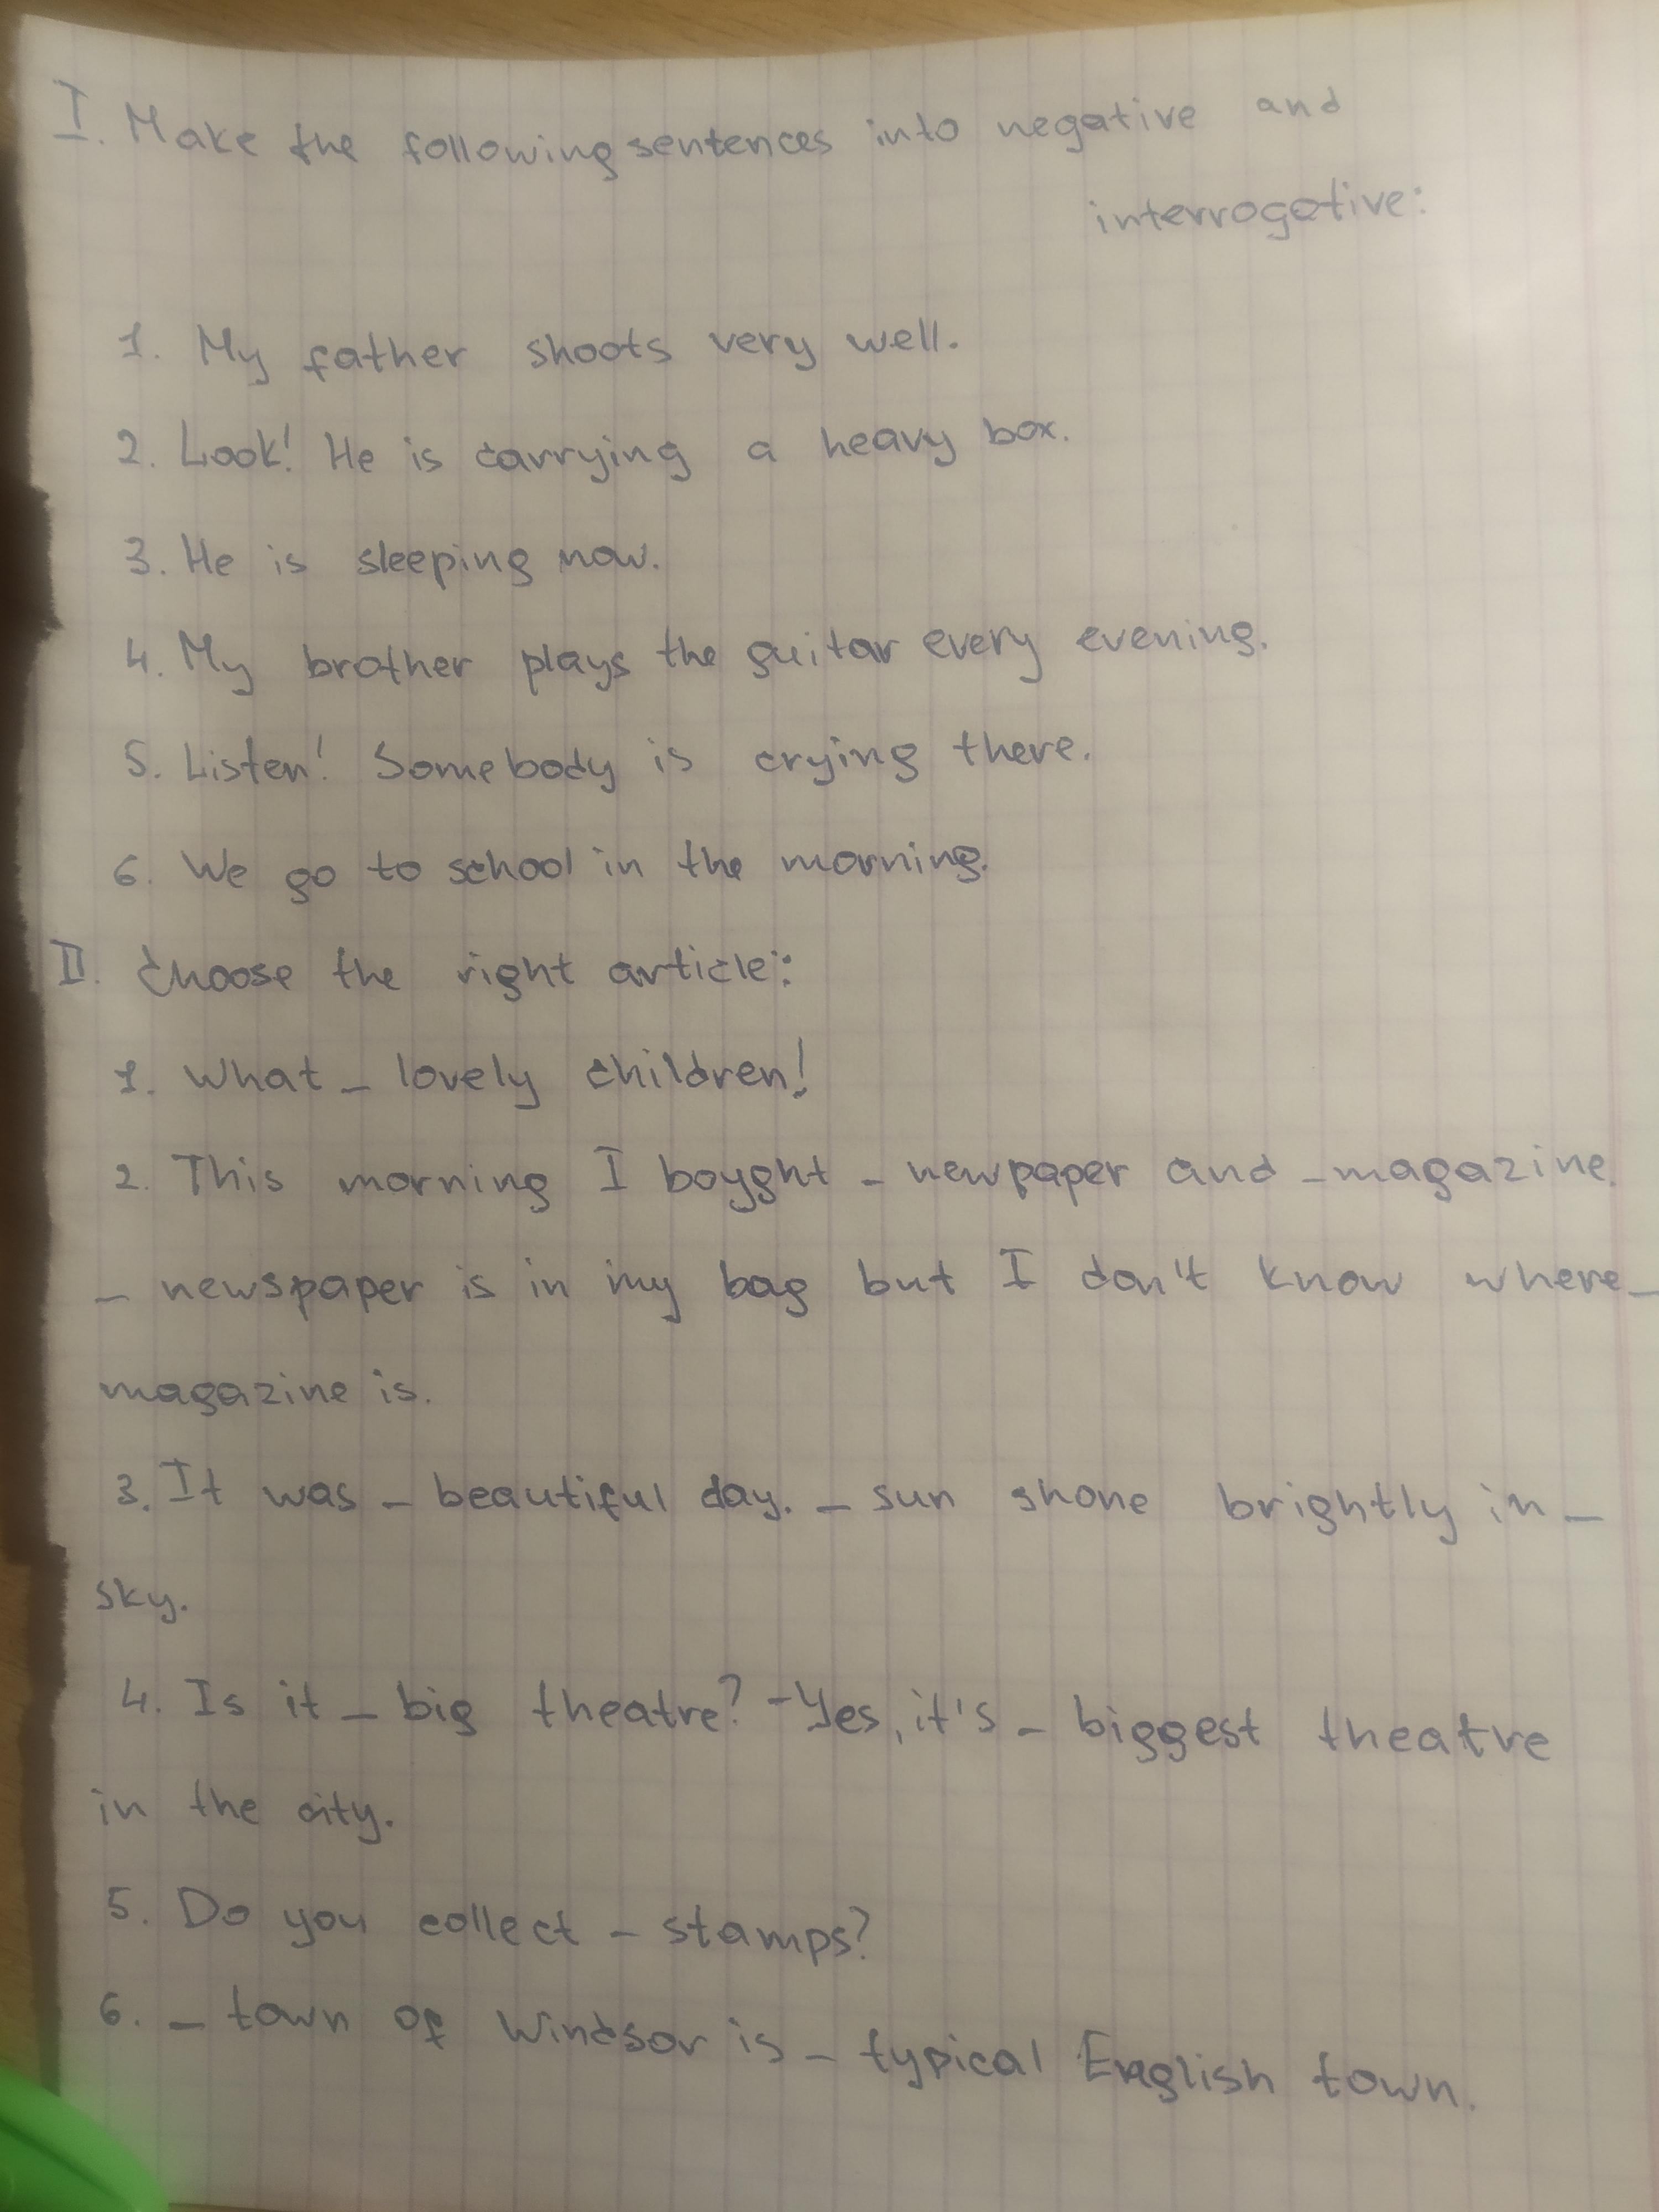 I. Make the following sentences into negative and
interrogative:
1. My father shoots very well.
2. Look! He is carrying a heavy box.
3. He is sleeping now.
4. My brother plays the guitar every evening.
5. Listen! Somebody is crying there.
6. We go to school in the morning.
II. Choose the right article:
1. What _ lovely children!
2. This morning I boyght _ newpaper and _ magazine.
_ newspaper is in my bag but I don't know where _
magazine is.
3. It was _ beautiful day. _ sun shone brightly in _
sky.
4. Is it _ big theatre? - Yes, it's _ biggest theatre
in the city.
5. Do you collect _ stamps?
6. _ town of Windsor is _ typical English town.